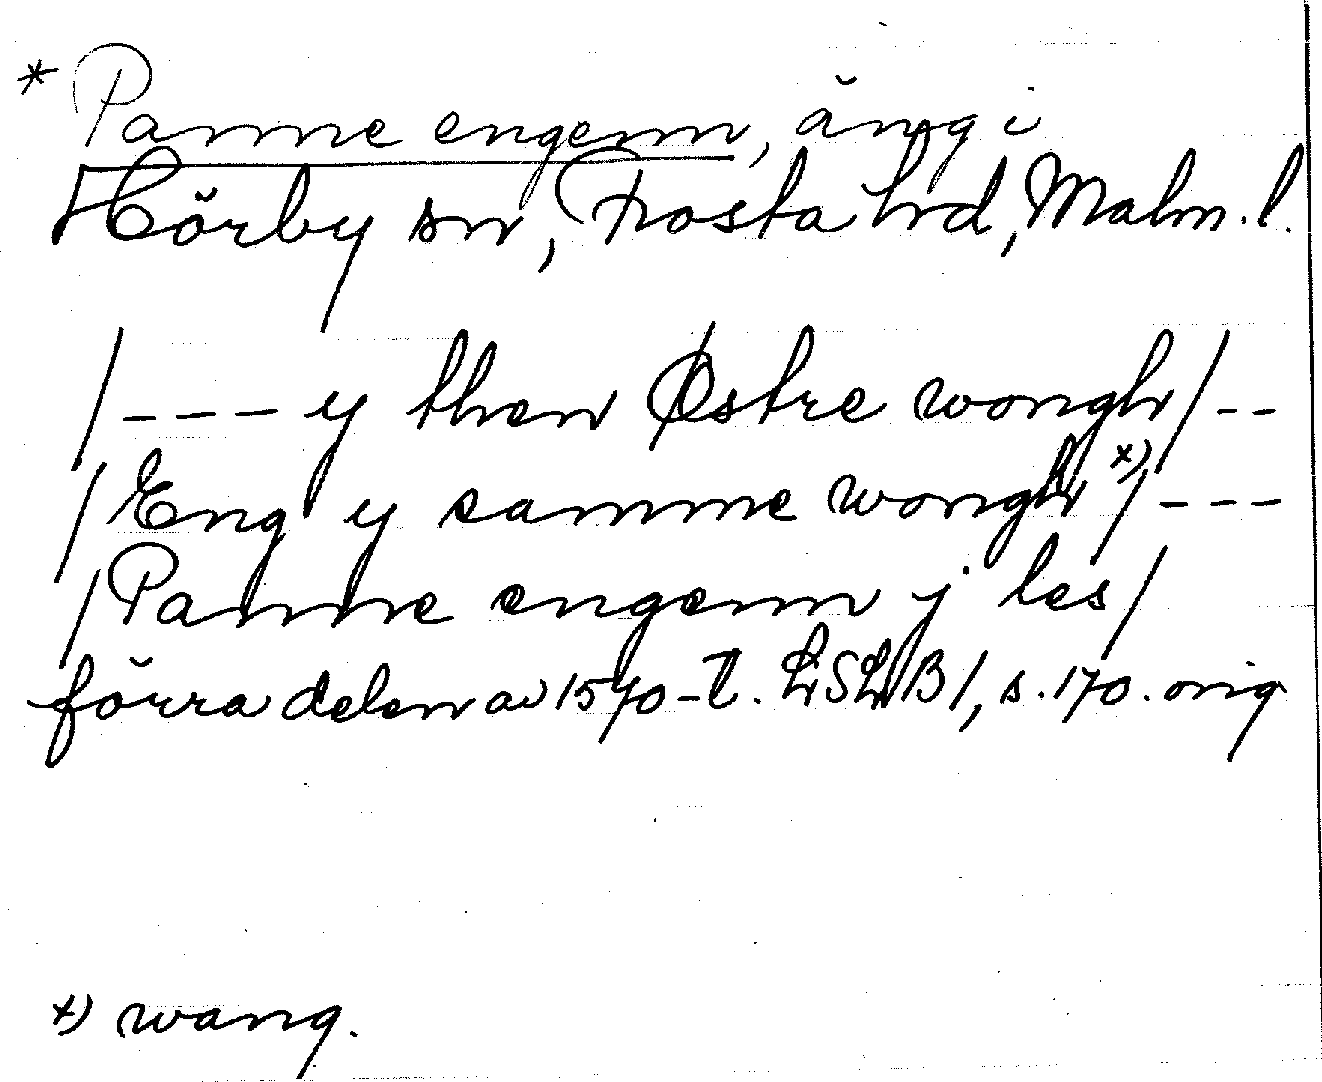 * Panne engenn, äng i
Hörby sn, Frosta hrd, Malm. l.
/--- y then Østre wongh/--
/Eng y samme wongh x)/---
/Panne engenn j les/
förra delen av 1570-t. LSLB 1, s. 170. orig
x) wang.